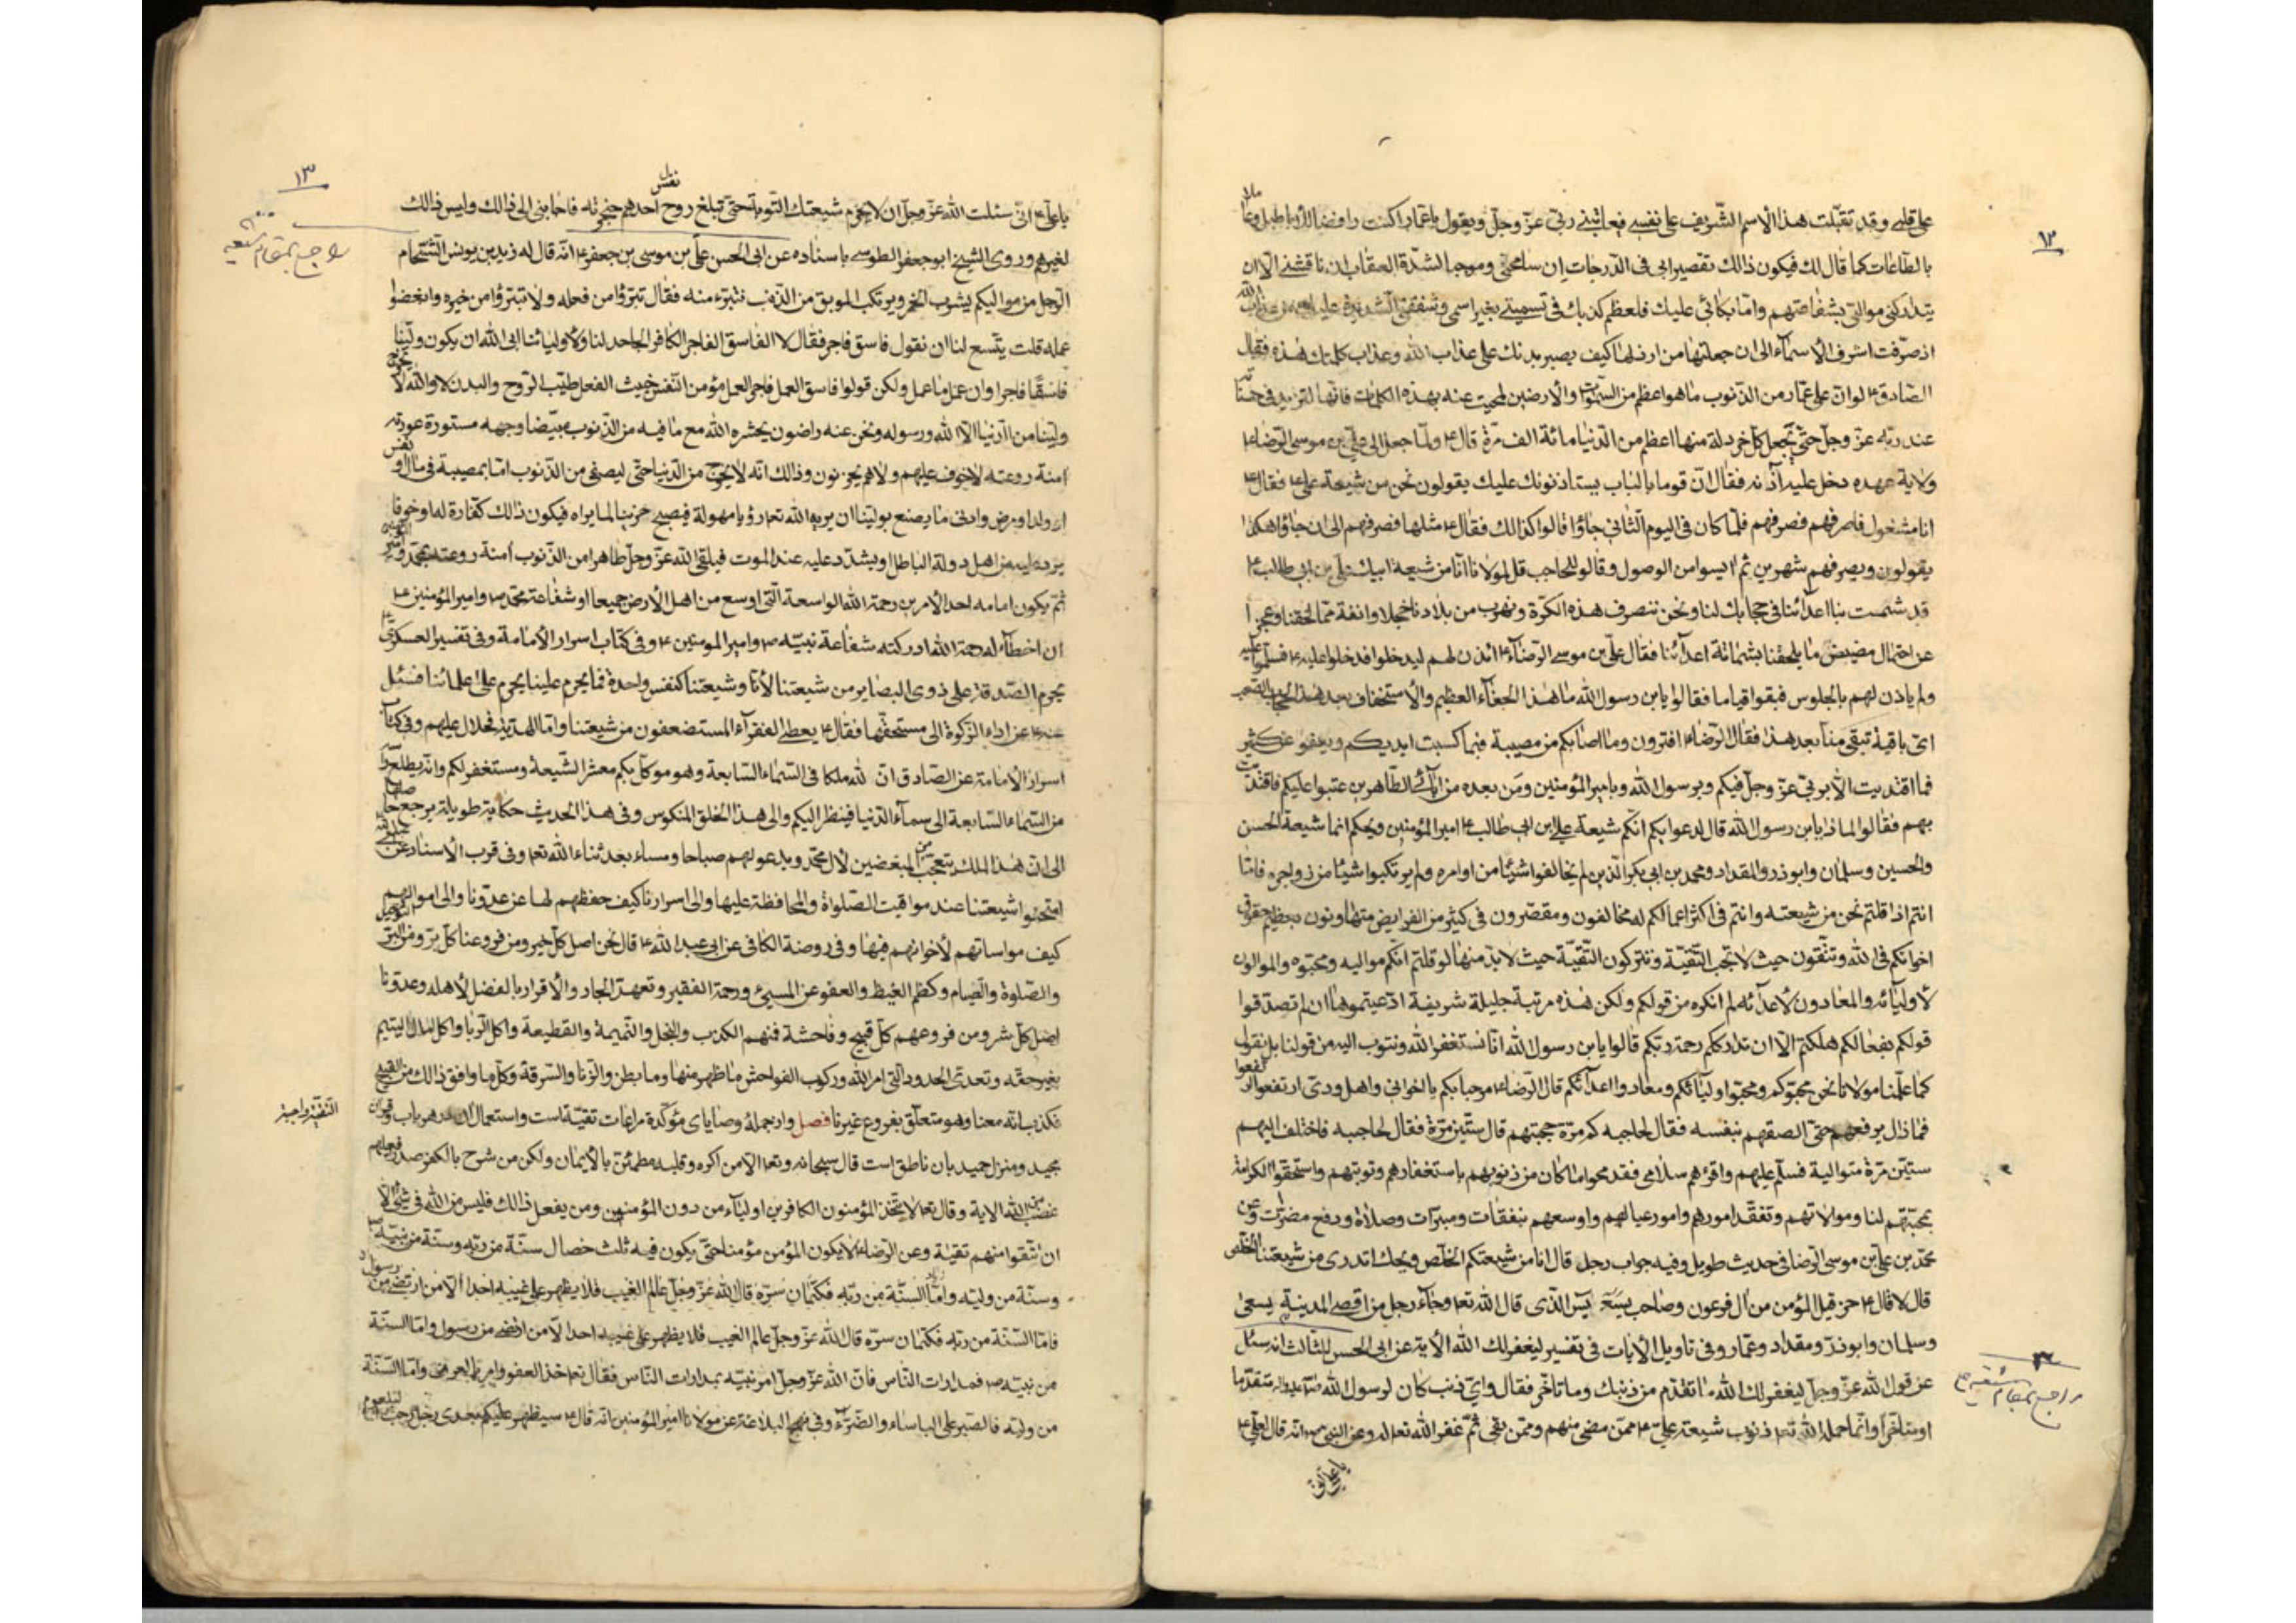 ١٢
على قلبى وقد تقبّلت هذا الاسم الشّريف على نفسى فيعاتبنى ربّى عزّ وجلّ ويقول يا عمّار اكنت رافضا للأباطيل وعاملا
بالطّاعات كما قال لك فيكون ذالك تقصيرا بى فى الدّرجات ان سامحنى وموجبا لشدّة العقاب ان ناقشنى الّا ان
يتداركنى موالىّ بشفاعتهم وامّا بكائى عليك فلعظم كذبك فى تسميتى بغير اسمى وشفقتى الشديدة عليك من عذاب الله
اذ صرّفت اشرف الأسماء الى ان جعلتها من ارذلها كيف يصبر بدنك على عذاب الله وعذاب كلمتك هذه فقال
الصّادق ع لو انّ على عمّار من الذّنوب ما هو اعظم من السّموات والأرضين لمحيت عنه بهذه الكلمات فانّها لتزيد فى حسناته
عند ربّه عزّ وجلّ حتّى يجعل كلّ خردلة منها اعظم من الدّنيا مائة الف مرّة قال ع ولمّا جعل الى علىّ بن موسى الرّضا ع
ولاية عهده دخل عليه آذنه فقال انّ قوما بالباب يستاذنونك عليك يقولون نحن من شيعة على ع فقال ع
انا مشغول فاصرفهم فصرفهم فلمّا كان فى اليوم الثّانى جاؤا قالوا كذالك فقال ع مثلها فصرفهم الى ان جاؤا هكذا
يقولون ويصرفهم شهرين ثم ايسوا من الوصول وقالوا للحاجب قل لمولانا انّا من شيعة ابيك علىّ بن ابى طالب ع
قد شمت بنا اعدائنا فى حجابك لنا ونحن ننصرف هذه الكرّة ونهرب من بلادنا خجلا وانفة ممّا لحقنا وعجزا
عن احتمال مضيض ما يلحقنا بشماتة اعدائنا فقال علىّ بن موسى الرّضا ع ائذن لهم ليدخلوا فدخلوا عليه ع فسلّموا عليه
ولم ياذن لهم بالجلوس فبقوا قياما فقالوا يا بن رسول الله ما هذا الجفاء العظيم والاستخفاف بعد هذا الحجاب الصّعب
اىّ باقية تبقى منّا بعد هذا فقال الرّضا ع اقرؤن وما اصابكم من مصيبة فبما كسبت ايديكم ويعفو عن كثير
فما اقتديت الّا بربّى عزّ وجلّ فيكم وبرسول الله وبامير المؤمنين ومن بعده من ابائى الطّاهرين عتبوا عليكم فاقتديت
بهم فقالوا لماذا يا بن رسول الله قال لدعواكم انّكم شيعة على ابن ابى طالب ع امير المؤمنين ويحكم انما شيعة الحسن
والحسين وسلمان وابوذر والمقداد ومحمد بن ابى بكر الّذين لم يخالفوا شيئا من اوامره ولم يرتكبوا شيئا من زواجره فامّا
انتم اذا قلتم نحن من شيعته وانتم فى اكثر اعمالكم له مخالفون ومقصّرون فى كثير من الفرايض متهاونون بعظيم حقوق
اخوانكم فى الله وتتّقون حيث لا تجب التّقيّة وتتركون التّقيّة حيث لا بدّ منها لو قلتم انّكم مواليه ومحبّوه والموالون
لأوليائه والمعادون لأعدائه لم انكره من قولكم ولكن هذه مرتبة جليلة شريفة ادّعيتموها ان لم تصدّقوا
قولكم بفعالكم هلكتم الّا ان تدارككم رحمة ربّكم قالوا يا بن رسول الله انّا نستغفر الله ونتوب اليه من قولنا بل نقول
كما علّمنا مولانا نحن محبّوكم ومحبّوا اوليائكم ومعادوا اعدائكم قال الرّضا ع مرحبا بكم يا اخوانى واهل ودّى ارتفعوا ارتفعوا
فما زال يرفعهم حتّى الصقهم بنفسه فقال لحاجبه كم مرّة حجبتهم قال ستّين مرّة فقال لحاجبه فاختلف اليهم
ستّين مرّة متوالية فسلّم عليهم واقرءهم سلامى فقد محوا ما كان من ذنوبهم باستغفارهم وتوبتهم واستحقّوا الكرامة
بمحبّتهم لنا وموالاتهم وتفقّد امورهم وامور عيالهم واوسعهم بنفقات ومبرّات وصلاة ودفع مضرّات وعن
محمّد بن علىّ بن موسى الرّضا فى حديث طويل وفيه جواب رجل قال انا من شيعتكم الخلّص ويحك اتدرى من شيعتنا الخلّص
قال لا قال ع حزقيل المؤمن من آل فرعون وصاحب يس الّذى قال الله تعا وجاء رجل من اقصى المدينة يسعى
وسلمان وابوذرّ ومقداد وعمّار وفى تاويل الأيات فى تفسير ليغفر لك الله الأية عن ابى الحسن الثّالث انه سئل
عن قول الله عزّ وجلّ ليغفر لك الله ما تقدّم من ذنبك وما تاخّر فقال واىّ ذنب كان لرسول الله متقدّما
او متاخّرا وانّما حمله الله تعا ذنوب شيعة علىّ ع ممّن مضى منهم وممّن بقى ثمّ غفر الله تعا له وعن النبى ص انّه قال لعلى ع
راجع بمقام شيعه
يا على انّى
١٣
يا على ع انّى سئلت الله عزّ وجلّ ان لا يحرم شيعتك التّوبة حتّى تبلغ روح احدهم حنجرته فاجابنى الى ذالك وليس ذالك
نفس
لغيرهم وروى الشّيخ ابو جعفر الطّوسى باسناده عن ابى الحسن علىّ بن موسى بن جعفر ع انّه قال له زيد بن يونس الشّحّام
راجع بمقام شيعه
الرّجل من مواليكم يشرب الخمر ويرتكب الموبق من الذّنب نتبرّء منه فقال تبرّؤا من فعله ولا تبرّؤا من خيره وابغضوا
عمله قلت يتّسع لنا ان نقول فاسق فاجر فقال لا الفاسق الفاجر الكافر الجاحد لنا ولأوليائنا ابى الله ان يكون وليّنا
فاسقا فاجرا وان عمل ما عمل ولكن قولوا فاسق العمل فاجر العمل مؤمن النّفس خبيث الفعل طيّب الرّوح والبدن لا والله لا يخرج
وليّنا من الدّنيا الّا الله ورسوله ونحن عنه راضون يحشره الله مع ما فيه من الذّنوب مبيّضا وجهه مستورة عورته
امنة روعته لا خوف عليهم ولا هم يحزنون وذالك انّه لا يخرج من الدّنيا حتّى ليصفى من الذّنوب امّا بمصيبة فى مال او نفس
او ولد او مرض وادنى ما يصنع بوليّنا ان يريه الله تعا رؤيا مهولة فيصبح حزينا لما يراه فيكون ذالك كفّارة له او خوفا
يرد عليه من اهل دولة الباطل او يشدّد عليه عند الموت فيلقى الله عزّ وجلّ طاهرا من الذّنوب امنة روعته بمحمّد و امير المؤمنين
ثمّ يكون امامه احد الأمرين رحمة الله الواسعة الّتى اوسع من اهل الأرض جميعا او شفاعة محمّد ص وامير المؤمنين ع
ان اخطأته رحمة الله ادركته شفاعة نبيّه ص وامير المومنين ع وفى كتاب اسرار الأمامة وفى تفسير العسكرىّ
يحرم الصّدقة على ذوى البصاير من شيعتنا لأنّا وشيعتنا كنفس واحدة فما يحرم علينا يحرم على علمائنا فسئل
عنه ع عن اداء الزّكوة الى مستحقّها فقال ع يعطى الفقراء المستضعفون من شيعتنا وامّا الهديّة فحلال عليهم وفى كتاب
اسرار الأمامة عن الصّادق انّ لله ملكا فى السّماء السّابعة وهو موكّل بكم معشر الشّيعة ومستغفر لكم وانّه يطلع
من السّماء السّابعة الى سماء الدّنيا فينظر اليكم والى هذا الخلق المنكوس وفى هذا الحديث حكاية طويلة يرجع حاصلها
الى انّ هذا الملك يتعجّب من المبغضين لأل محمّد ويدعو لهم صباحا ومساء بعد ثناء الله تعا وفى قرب الأسناد عن
امتحنوا شيعتنا عند مواقيت الصّلواة والمحافظة عليها والى اسرارنا كيف حفظهم لها عن عدوّنا والى اموالهم
كيف مواساتهم لأخوانهم فيها وفى روضة الكافى عن ابى عبد الله ع قال نحن اصل كلّ خير ومن فروعنا كلّ برّ ومن البرّ التّوحيد
والصّلوة والصّيام وكظم الغيظ والعفو عن المسىء ورحمة الفقير وتعهّد الجار والأقرار بالفضل لأهله وعدوّنا
اصل كلّ شر ومن فروعهم كلّ قبيح وفاحشة فمنهم الكذب والبخل والنّميمة والقطيعة واكل الرّبا واكل مال اليتيم
بغير حقّه وتعدّى الحدود الّتى امر الله وركوب الفواحش ما ظهر منها وما بطن والزّنا والسّرقة وكلّ ما وافق ذالك من القبيح
فكذب انّه معنا وهو متعلّق بفروع غيرنا فصل واز جملهٔ وصاياى مؤكّده مراعات تقيّه است واستعمال ان در هر باب وقران
التّقيّة واجبة
مجيد ومنزل حميد بان ناطق است قال سبحانه وتعا الّا من اكره وقلبه مطمئنّ بالأيمان ولكن من شرح بالكفر صدرا فعليهم
غضب من الله الاية وقال تعا لا يتّخذ المؤمنون الكافرين اولياء من دون المؤمنين ومن يفعل ذالك فليس من الله فى شىء الّا
ان تتّقوا منهم تقية وعن الرّضا ع لا يكون المؤمن مؤمنا حتّى يكون فيه ثلث خصال سنّة من ربّه وسنّة من نبيّه
وسنّة من وليّه وامّا السّنّة من ربّه فكتمان سرّه قال الله عزّ وجلّ عالم الغيب فلا يظهر على غيبه احدا الّا من ارتضى من رسول
فامّا السّنّة من ربّه فكتمان سرّه قال الله عزّ وجلّ عالم الغيب فلا يظهر على غيبه احدا الّا من ارتضى من رسول وامّا السّنّة
من نبيّه ص فمدارات النّاس فانّ الله عزّ وجلّ امر نبيّه بمدارات النّاس فقال تعا خذ العفو وامر بالعرف وامّا السّنّة
من وليّه فالصّبر على الباساء والضّرّاء وفى نهج البلاغة عن مولانا امير المؤمنين انّه قال ع سيظهر عليكم بعدى رجل رحب البلعوم